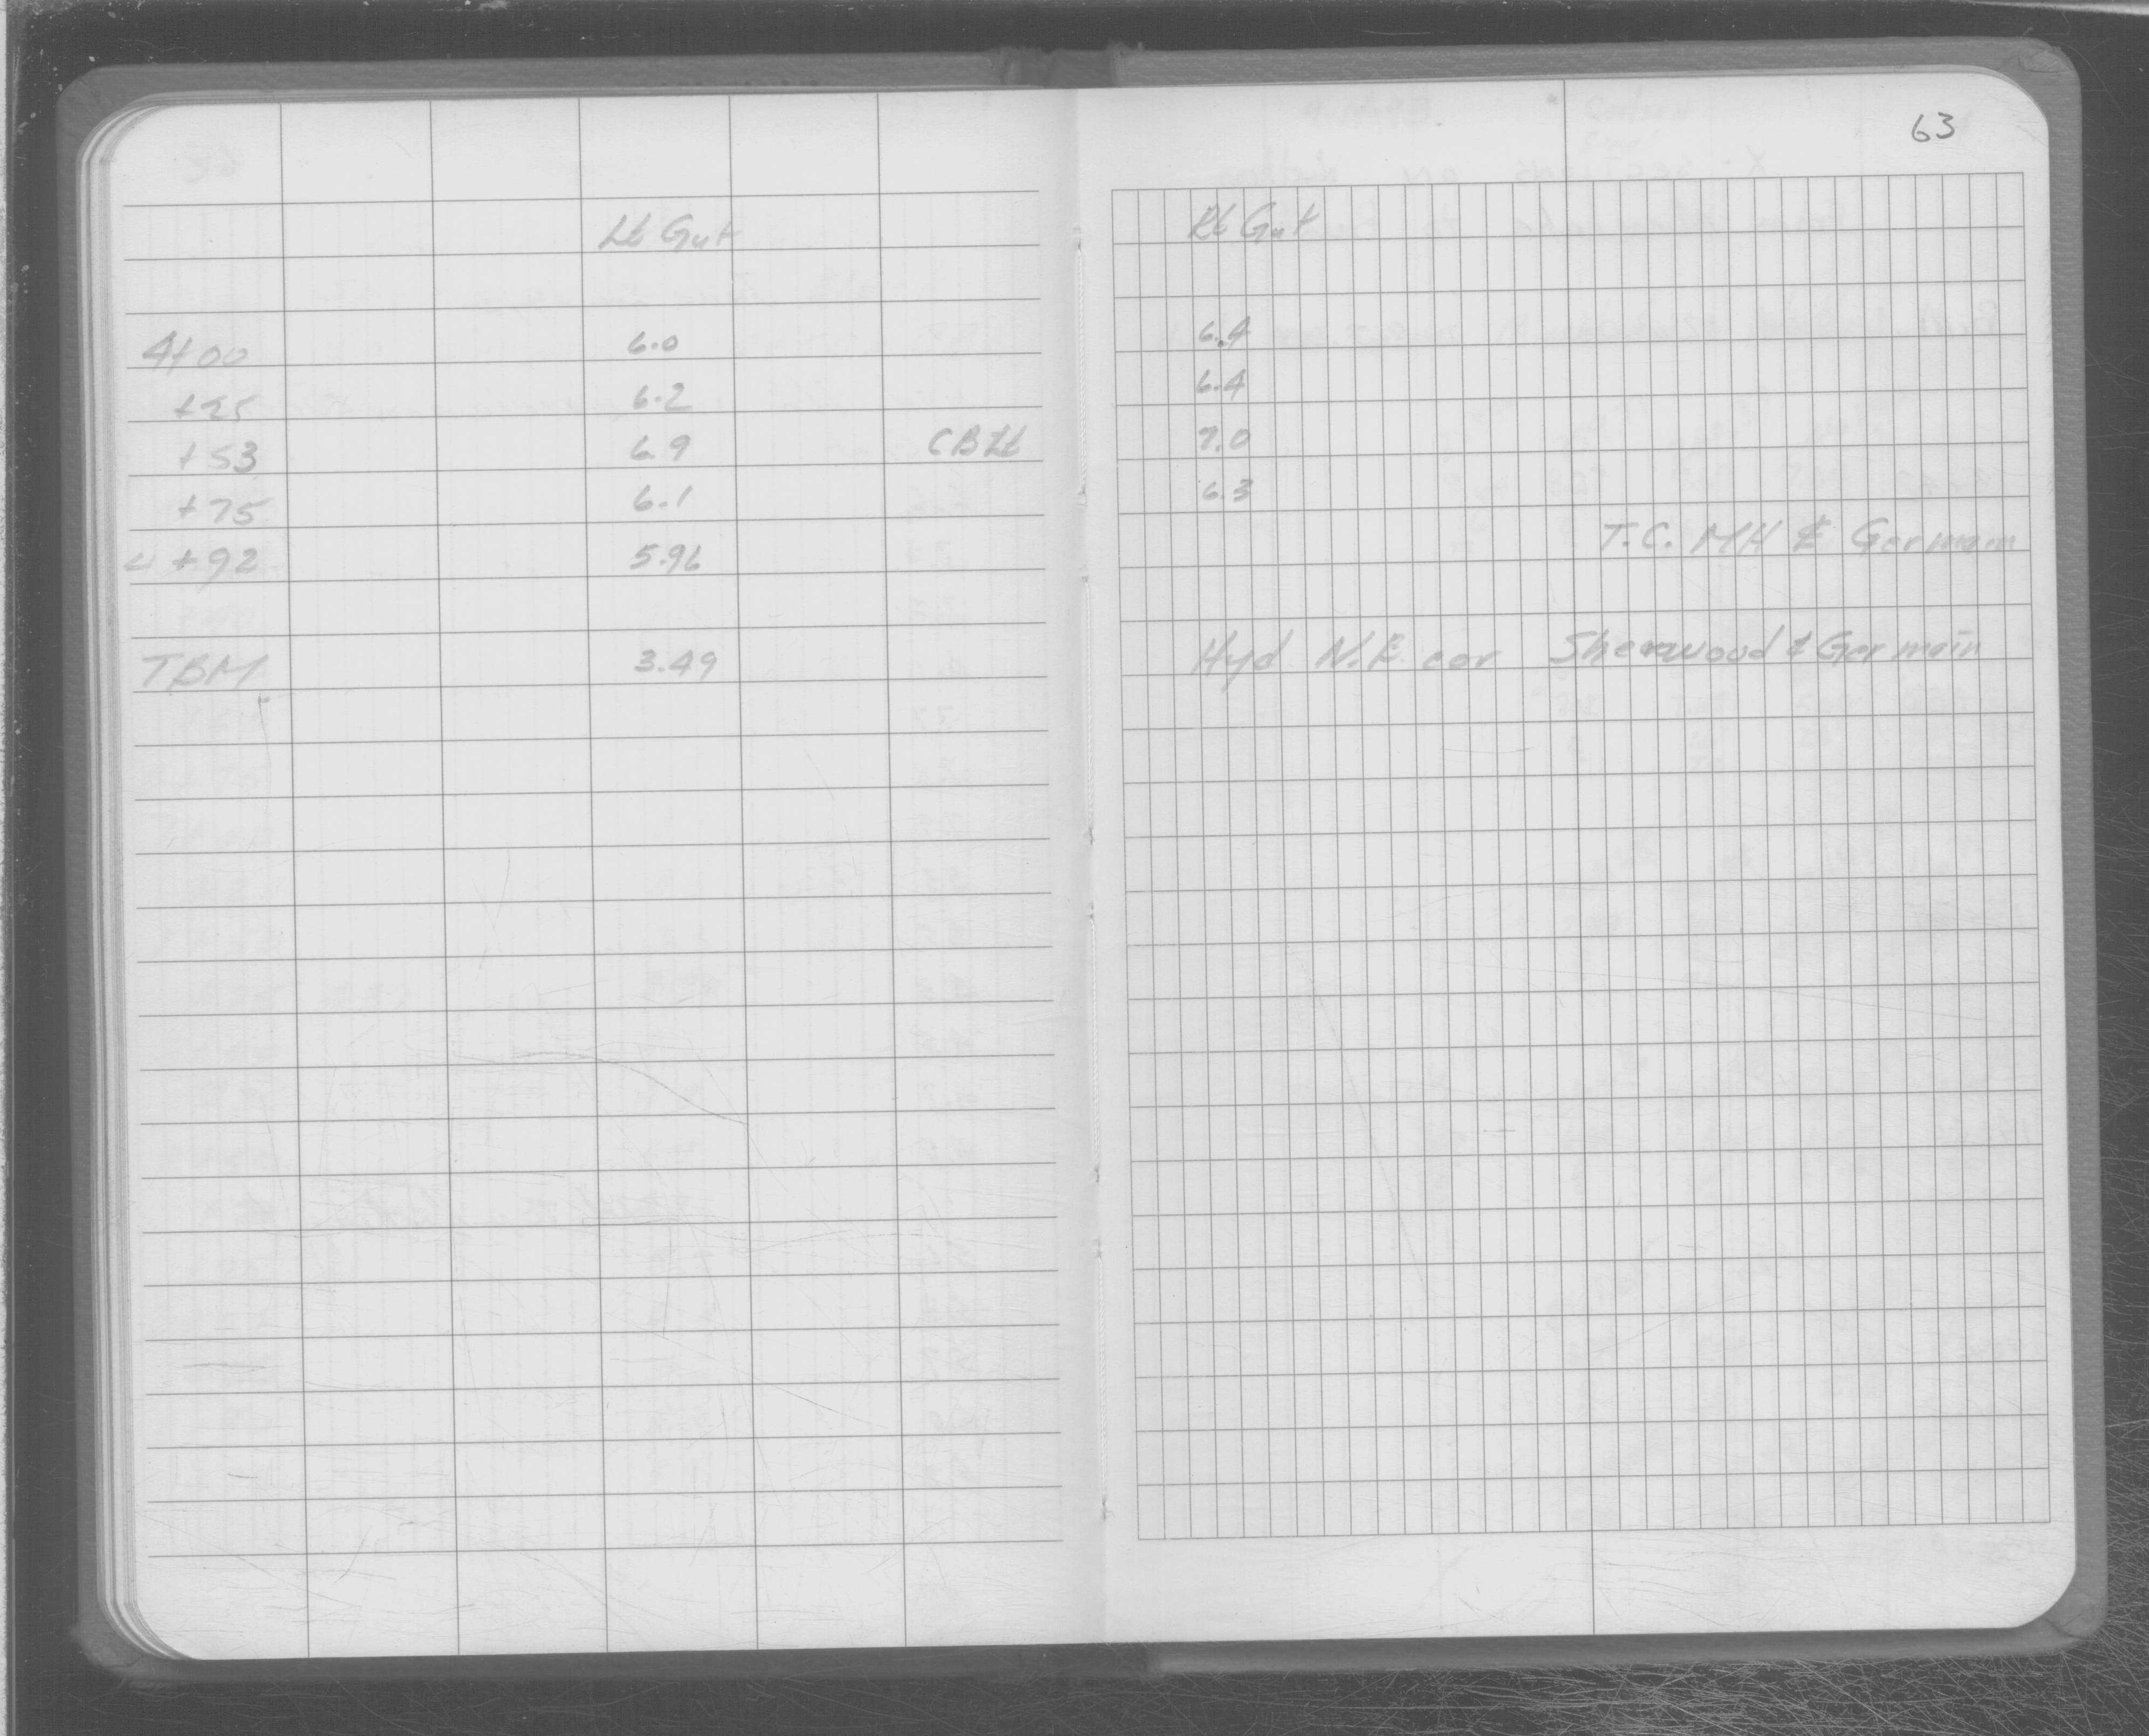 63
Lt Gut Rt Gut
4+00 6.0 6.4
+25 6.2 6.4
+53 6.9 CB Lt 7.0
+75 6.1 6.3
4+92 5.96 T.C. MH ℄ Germain
TBM 3.49 Hyd N.E. cor Sherwood & Germain